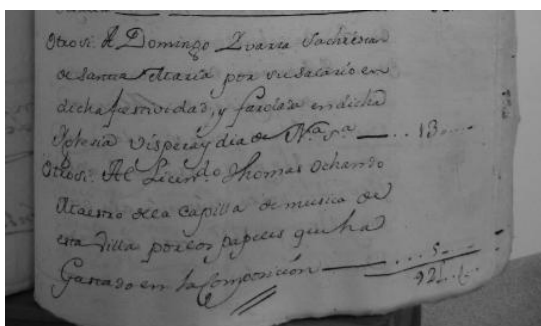 Otrosi. A Domingo Zvaria Sachristan
de Santa Maria por su salario en
dicha festividad, y en dicha
Iglesia Visperas y dia de Nra. Sra. 13
Otrosi. Al Licendo. Thomas Ochando
Maestro de la Capilla de musica de
esta Villa por los papeles que ha
Gastado en la Composición 5
92